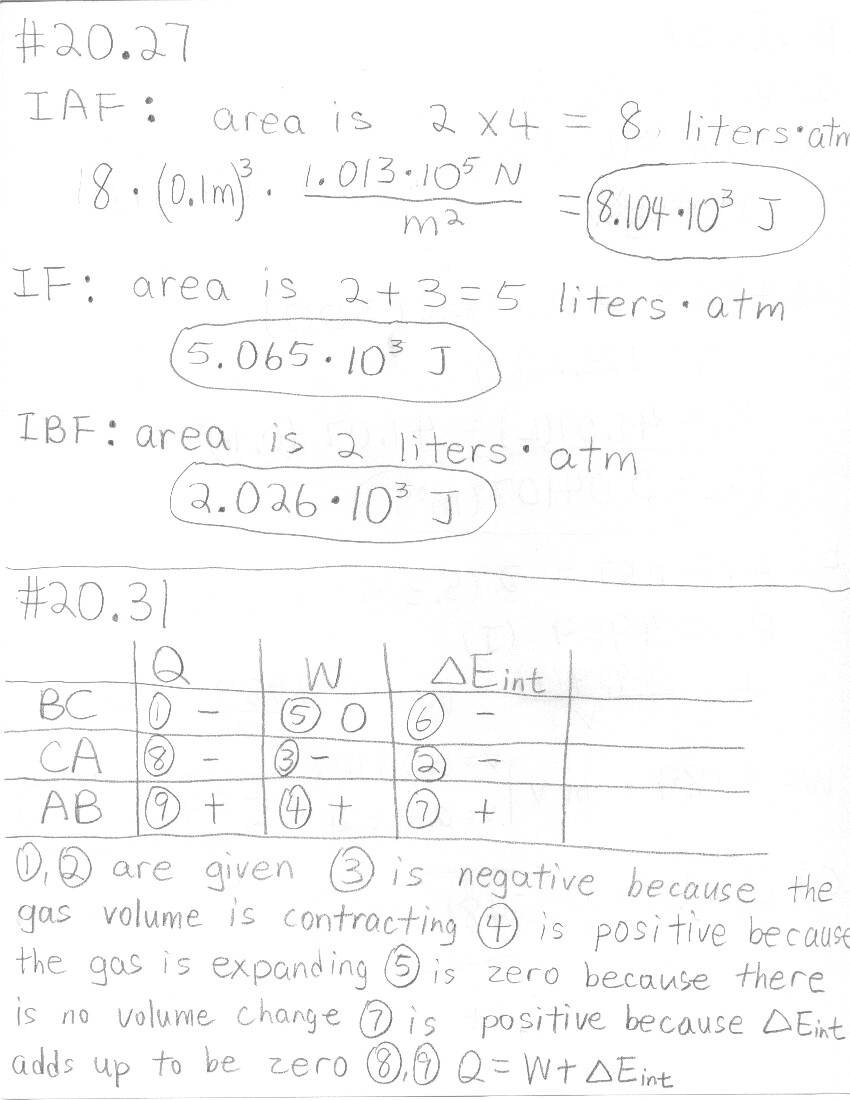 #20.27
IAF: area is 2 x 4 = 8 liters·atm
8 · (0.1m)³ · 1.013·10⁵ N / m² = 8.104·10³ J
IF: area is 2+3=5 liters·atm
5.065·10³ J
IBF: area is 2 liters·atm
2.026·10³ J
#20.31
Q W ΔEint
BC ① - ⑤ 0 ⑥ -
CA ⑧ - ③ - ② -
AB ⑨ + ④ + ⑦ +
①,② are given ③ is negative because the
gas volume is contracting ④ is positive because
the gas is expanding ⑤ is zero because there
is no volume change ⑦ is positive because ΔEint
adds up to be zero ⑧,⑨ Q = W + ΔEint